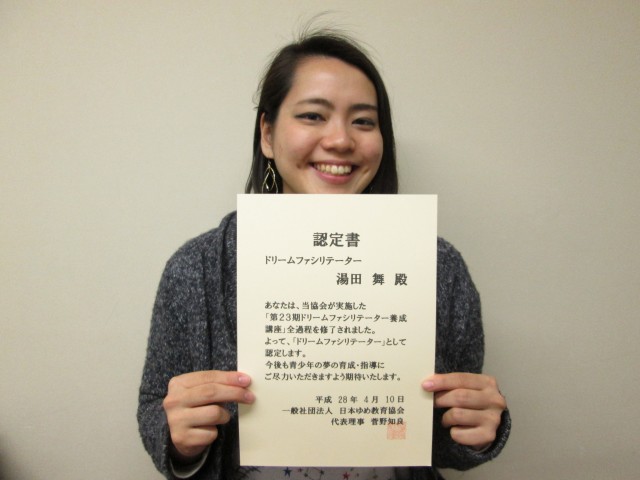 認定書
ドリームファシリテーター
湯田 舞 殿
あなたは、当協会が実施した
「第23期ドリームファシリテーター養成
講座」全過程を修了されました。
よって、「ドリームファシリテーター」として
認定します。
今後も青少年の夢の育成・指導に
ご尽力いただきますよう期待いたします。
平成 28年 4月 10日
一般社団法人 日本ゆめ教育協会
代表理事 菅野知良